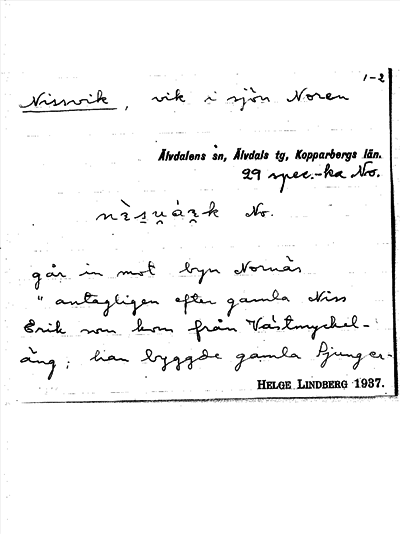 1-2
Nissvik, vik i sjön Noren
Älvdalens sn, Älvdals tg, Kopparbergs län.
29 spec.-ka No.
No.
går in mot byn Nornäs
" antagligen efter gamla Niss
Erik som kom från Västmyckel-
äng; han byggde gamla Ljunger-
HELGE LINDBERG 1937.